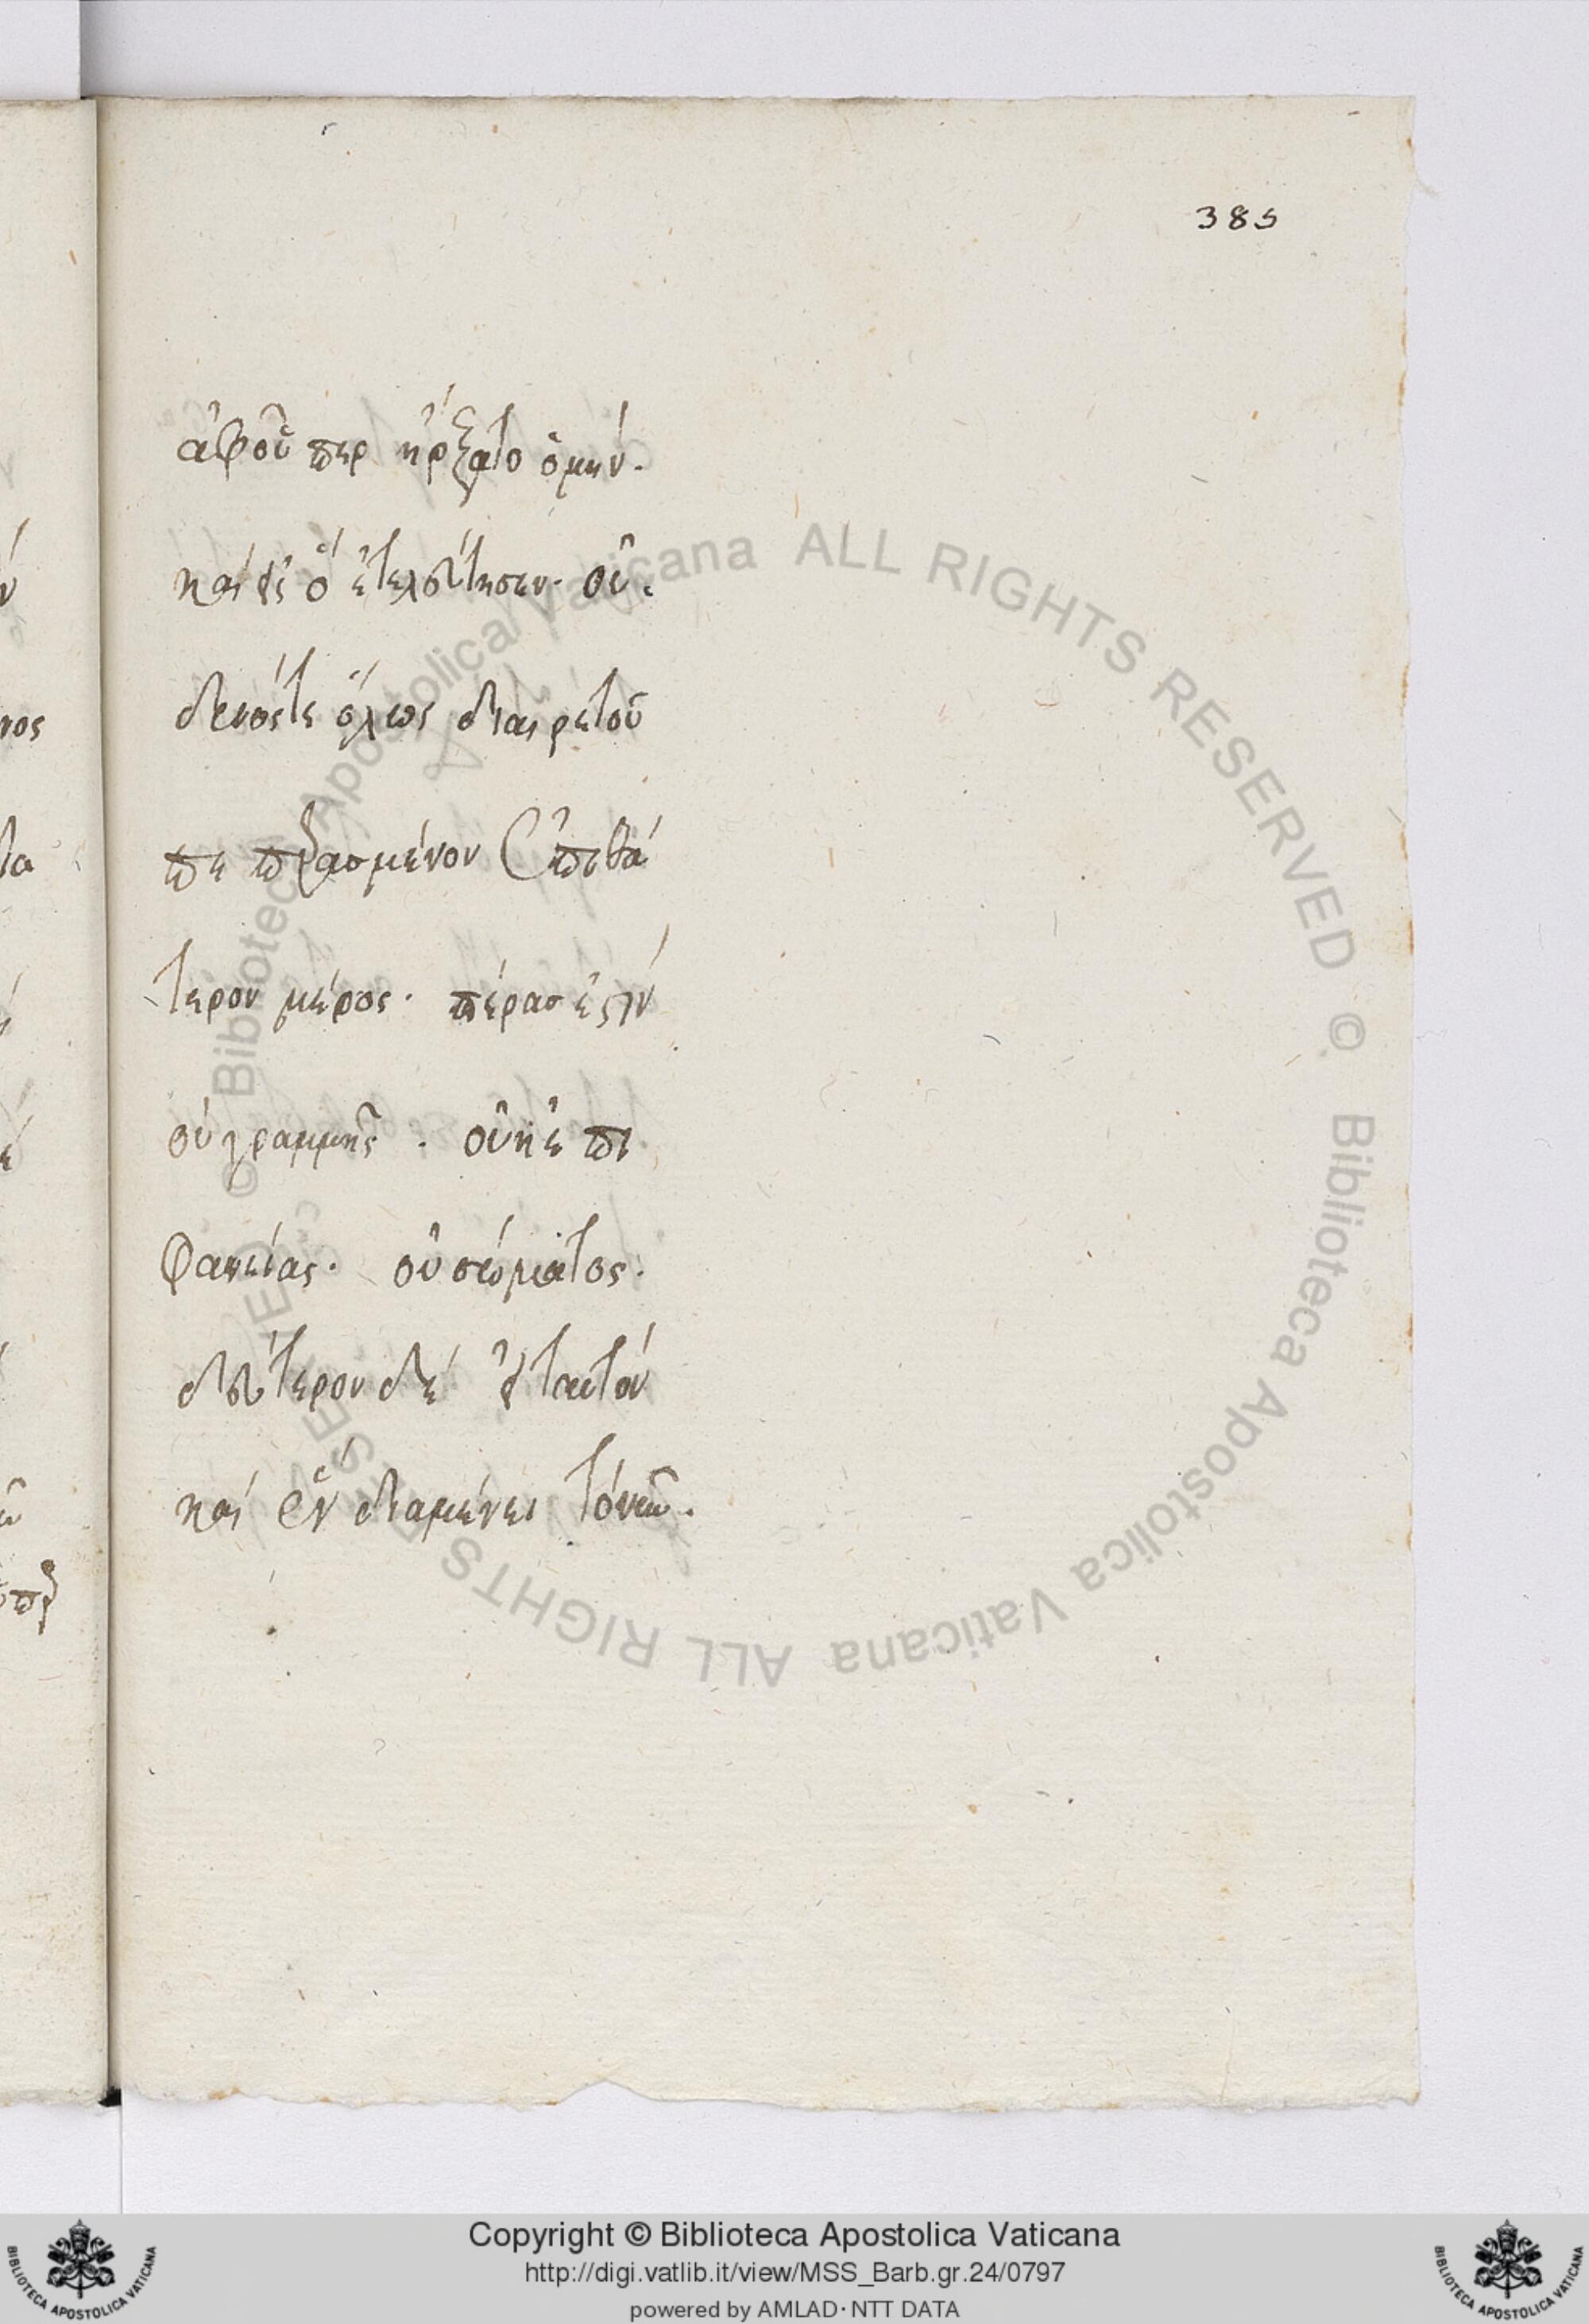 385
ἀφοῦ περ ἤρξατο ὁμὴν.
καὶ εἰς ὃ ἐτελεύτησεν. οὐ.
δενός τε ὅλως διαιρετοῦ
πε περασμένου ἐπιθά
τερον μέρος. πέρας ἐστὶν
οὐ γραμμῆς. οὐκ ἐπι
φανείας. οὐ σώματος.
δεύτερον δὲ εἰ ταυτὸν
καὶ ἓν διαμένει τὸ νῦν.
Copyright © Biblioteca Apostolica Vaticana
http://digi.vatlib.it/view/MSS_Barb.gr.24/0797
powered by AMLAD·NTT DATA
© Biblioteca Apostolica Vaticana ALL RIGHTS RESERVED
© Biblioteca Apostolica Vaticana ALL RIGHTS RESERVED
BIBLIOTECA APOSTOLICA VATICANA
BIBLIOTECA APOSTOLICA VATICANA